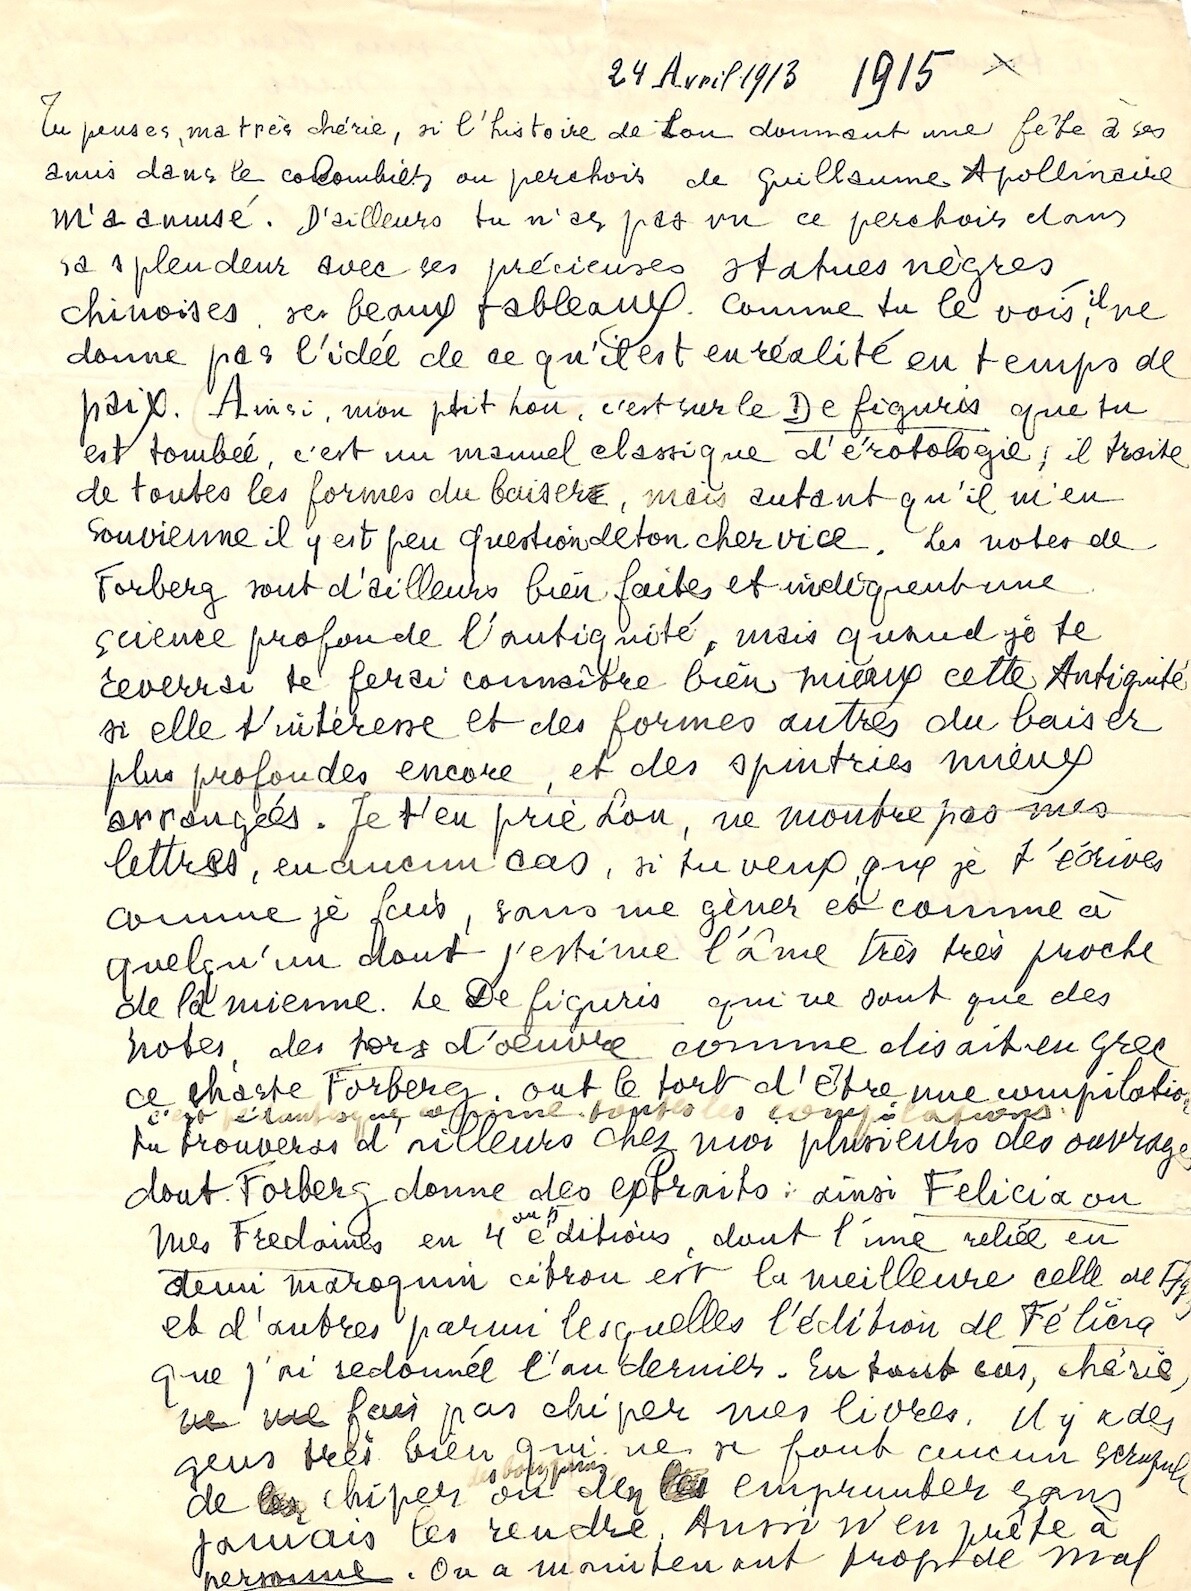 24 Avril 1913 1915
Tu penses, ma très chérie, si l'histoire de Lou donnant une fête à ses
amis dans le colombier ou perchoir de Guillaume Apollinaire
m'a amusé. D'ailleurs tu n'as pas vu ce perchoir dans
sa splendeur avec ses précieuses statues nègres
chinoises, ses beaux tableaux. Comme tu le vois, il ne
donne pas l'idée de ce qu'il est en réalité en temps de
paix. Ainsi, mon ptit Lou, c'est sur le De figuris que tu
est tombée, c'est un manuel classique d'érotologie ; il traite
de toutes les formes du baiser, mais autant qu'il m'en
souvienne il y est peu question de ton cher vice. Les notes de
Forberg sont d'ailleurs bien faites et indiquent une
science profonde de l'antiquité, mais quand je te
reverrai te ferai connaître bien mieux cette Antiquité
si elle t'intéresse et des formes autres du baiser
plus profondes encore, et des spintries mieux
arrangées. Je t'en prie Lou, ne montre pas mes
lettres, en aucun cas, si tu veux que je t'écrives
comme je fais, sans me gêner et comme à
quelqu'un dont j'estime l'âme très très proche
de la mienne. Le De figuris qui ne sont que des
notes, des hors d'oeuvre comme disait en grec
ce chaste Forberg, ont le tort d'être une compilation
comme toutes les compilations.
tu trouveras d'ailleurs chez moi plusieurs des ouvrages
dont Forberg donne des extraits : ainsi Felicia ou
Mes Fredaines en 4 ou 5 éditions, dont l'une reliée en
demi maroquin citron est la meilleure celle de
et d'autres parmi lesquelles l'édition de Félicia
que j'ai redonnée l'an dernier. En tout cas, chérie,
ne me fais pas chiper mes livres. Il y a des
gens très bien qui ne se font aucun scrupule
de chiper des bouquins ou de les emprunter sans
jamais les rendre. Aussi n'en prête à
personne. On a maintenant trop de mal